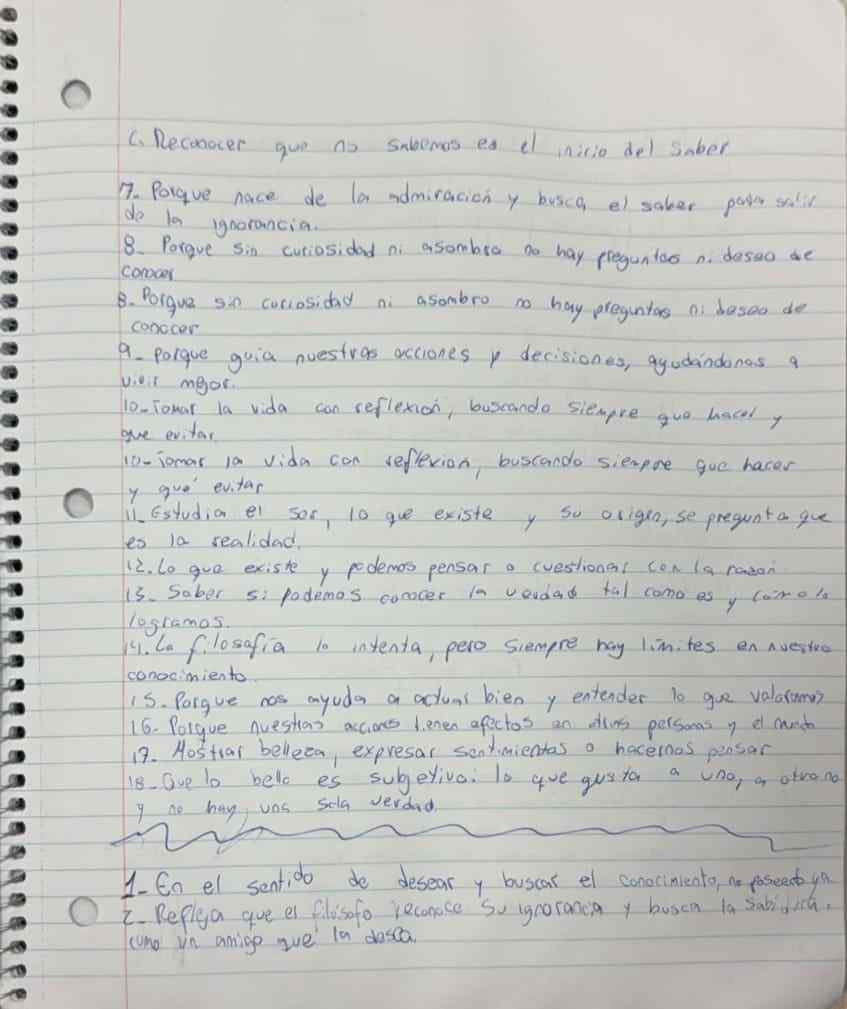 6. Reconocer que no sabemos es el inicio del saber
7.- Porque nace de la admiración y busca el saber para salir
de la ignorancia.
8- Porque sin curiosidad ni asombro no hay preguntas ni deseo de
conocer
8.- Porque sin curiosidad ni asombro no hay preguntas ni deseo de
conocer
9- porque guia nuestras acciones y decisiones, ayudándonos a
vivir mejor.
10- Tomar la vida con reflexión, buscando siempre que hacer y
que evitar
10- Tomar la vida con reflexion, buscando siempre que hacer
y qué evitar
11- Estudia el ser, lo que existe y su origen, se pregunta que
es la realidad.
12. Lo que existe y podemos pensar o cuestionar con la razón
13- Saber si podemos conocer la verdad tal como es y cómo lo
logramos.
14. La filosofía lo intenta, pero siempre hay límites en nuestro
conocimiento.
15. Porque nos ayuda a actuar bien y entender lo que valoramos
16- Porque nuestras acciones tienen efectos en otras personas y el mundo
17- Mostrar belleza, expresar sentimientos o hacernos pensar
18- Que lo bello es subjetivo: lo que gusta a uno, a otro no
y no hay una sola verdad.
1- En el sentido de desear y buscar el conocimiento, no poseerlo ya
2- Refleja que el filósofo reconoce su ignorancia y busca la sabiduría,
como un amigo que la desea.